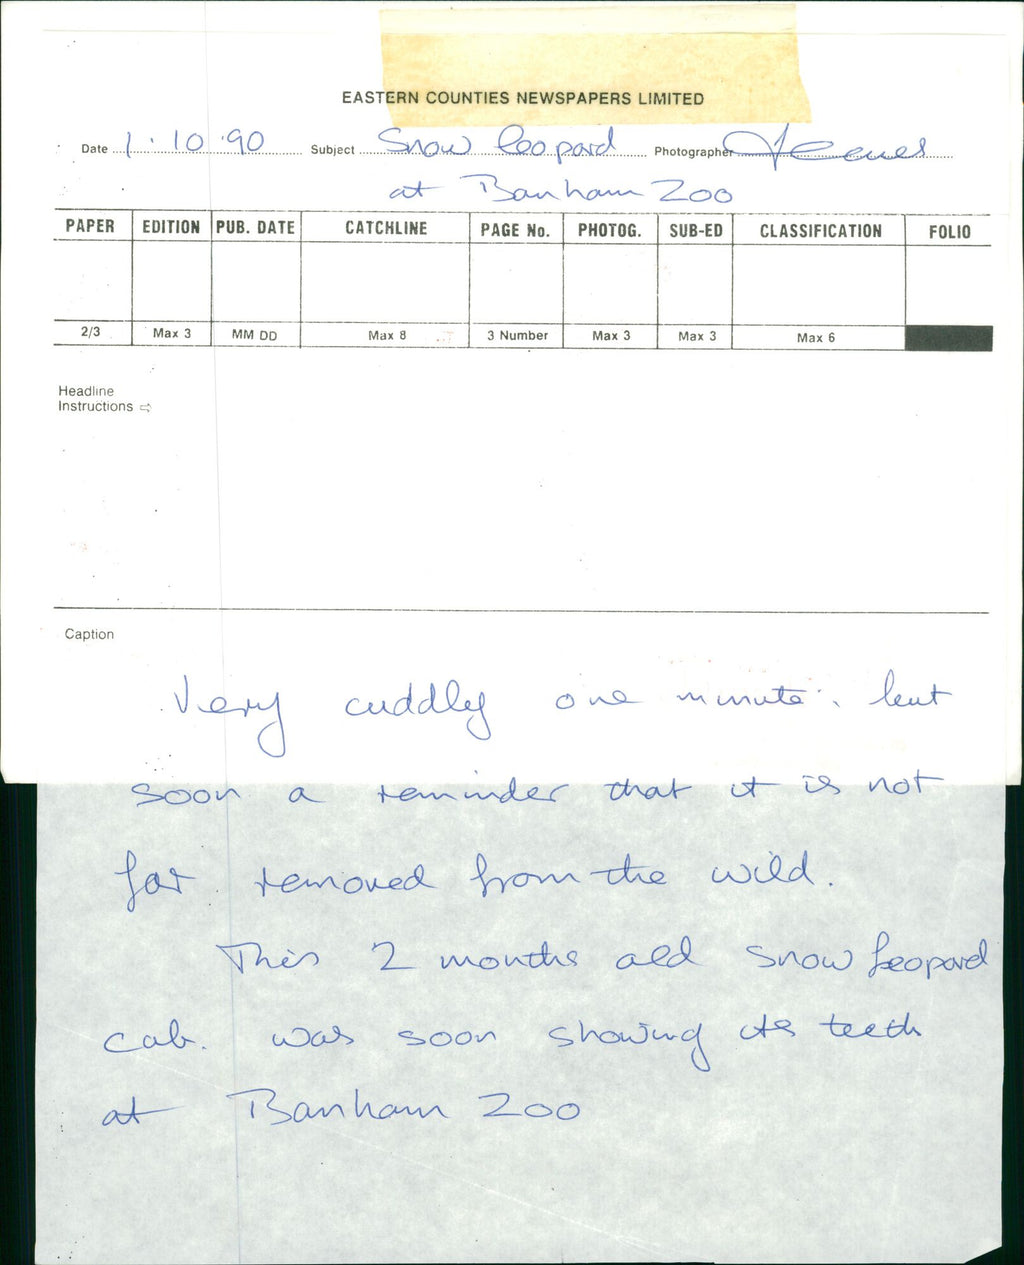 EASTERN COUNTIES NEWSPAPERS LIMITED
Date 1.10.90 Subject Snow leopard Photographer
at Banham Zoo
PAPER EDITION PUB. DATE CATCHLINE PAGE No. PHOTOG. SUB-ED CLASSIFICATION FOLIO
2/3 Max 3 MM DD Max 8 3 Number Max 3 Max 3 Max 6
Headline
Instructions ⇨
Caption
Very cuddly one minute, but
soon a reminder that it is not
far removed from the wild.
This 2 months old snow leopard
cub. was soon showing its teeth
at Banham Zoo